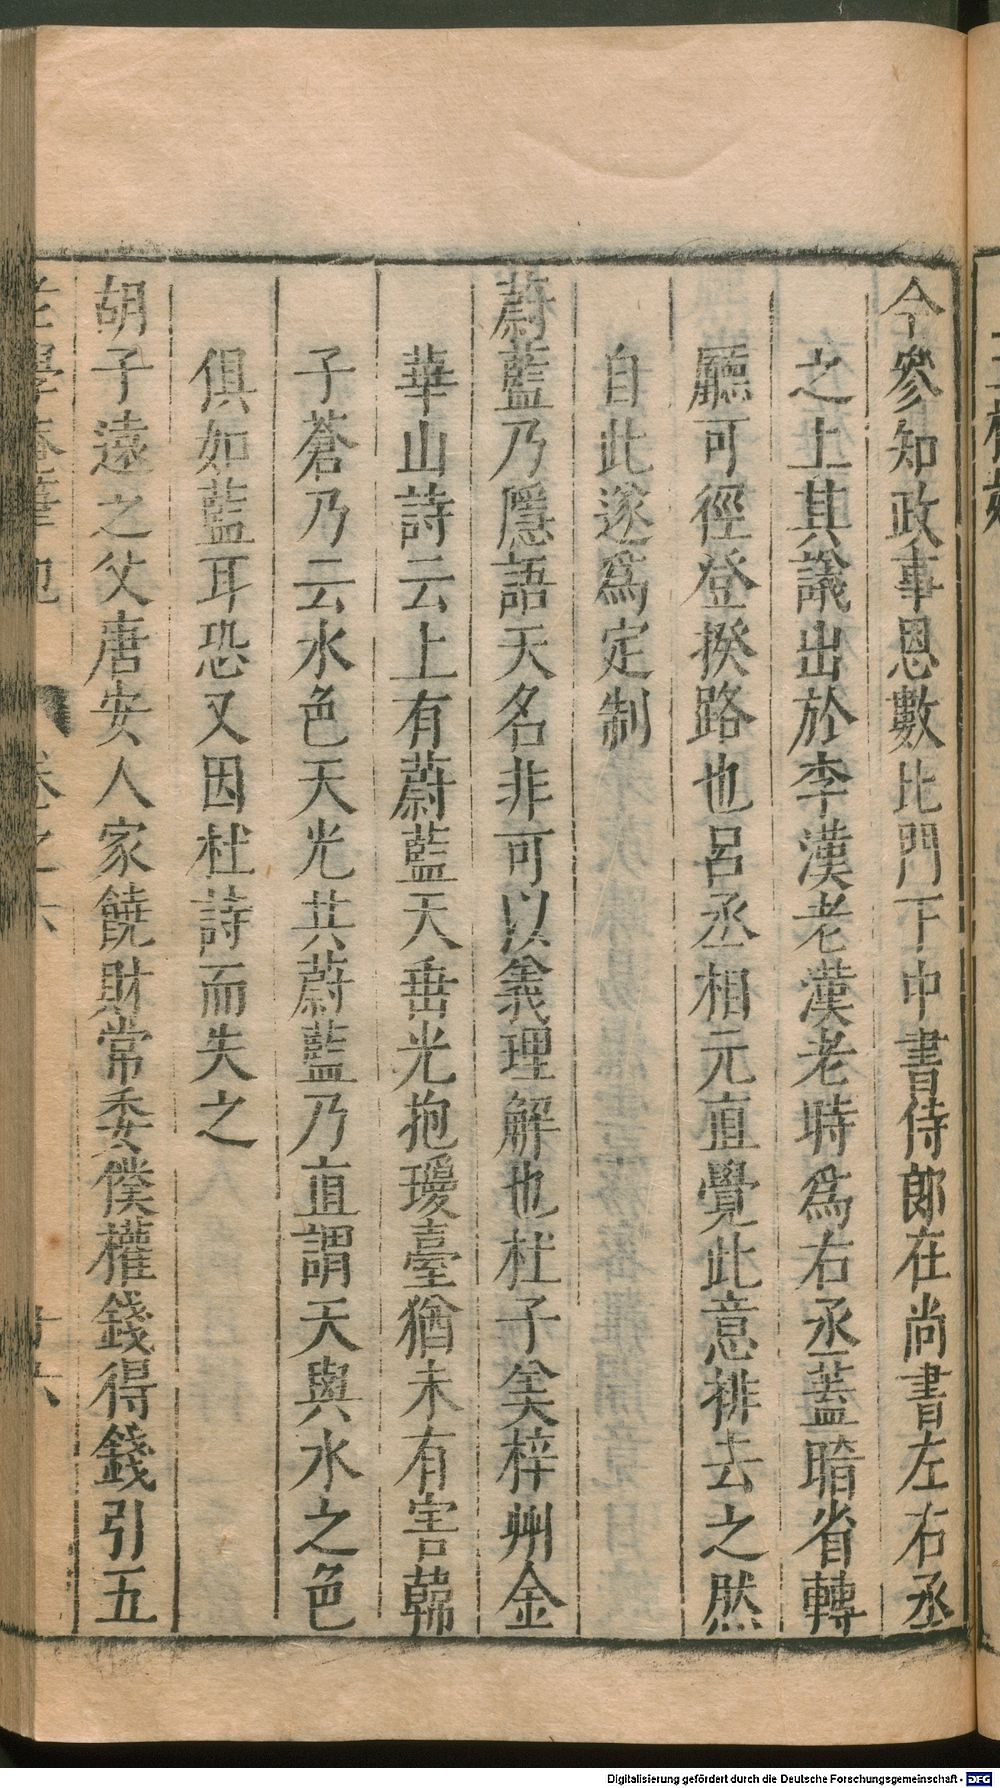 今參知政事恩數比門下中書侍郎在尚書左右丞
之上其議出於李漢老漢老時為右丞蓋暗省轉
廳可徑登揆路也呂丞相元直覺此意排去之然
自此遂為定制
蔚藍乃隱語天名非可以義理解也杜子美梓州金
華山詩云上有蔚藍天垂光抱瓊臺猶未有害韓
子蒼乃云水色天光共蔚藍乃直謂天與水之色
俱如藍耳恐又因杜詩而失之
胡子遠之父唐安人家饒財常委僕權錢得錢引五
老學庵筆記
卷之六
Digitalisierung gefördert durch die Deutsche Forschungsgemeinschaft - DFG